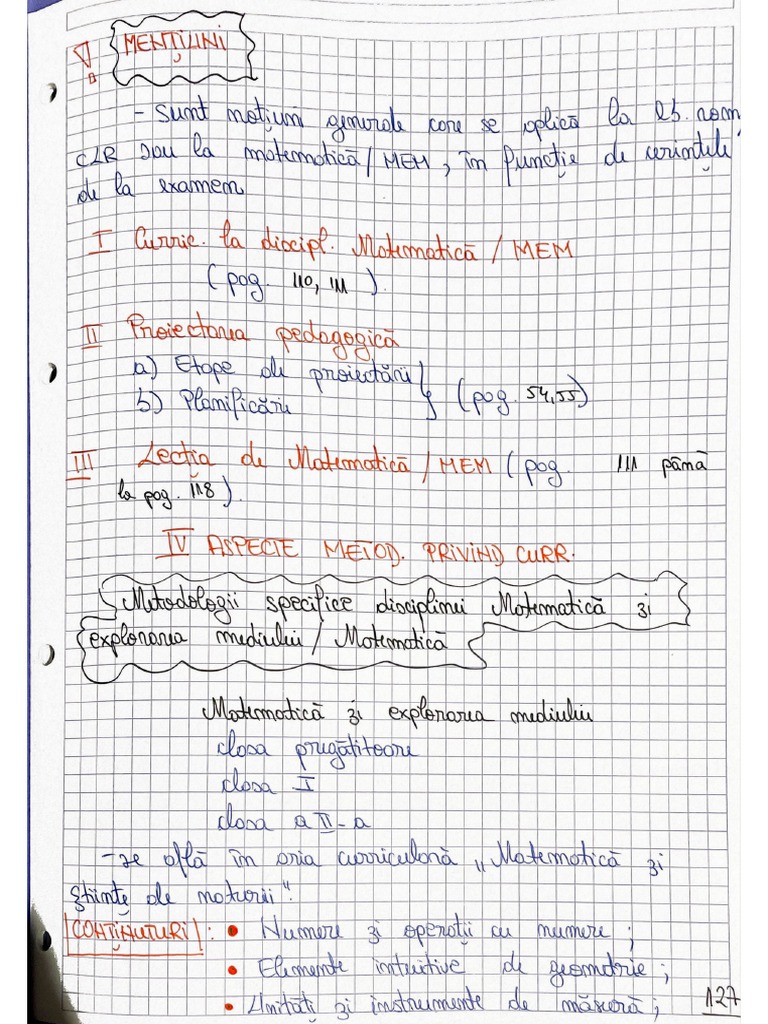 MENȚIUNI
- sunt noțiuni generale care se aplică la lb. rom,
CLR sau la matematică/MEM, în funcție de cerințele
de la examen
I Curric. la discipl. Matematică / MEM
(pag. 110, 111).
II Proiectarea pedagogică
a) Etape de proiectării
b) Planificării
(pag. 54,55)
III Lecția de Matematică / MEM (pag. 111 până
la pag. 118).
IV ASPECTE METOD. PRIVIND CURR.
Metodologii specifice disciplinei Matematică și
explorarea mediului / Matematică
Matematică și explorarea mediului
clasa pregătitoare
clasa I
clasa a II-a
- se află în aria curriculară „Matematică și
științe ale naturii".
CONȚINUTURI: • Numere și operații cu numere;
• Elemente intuitive de geometrie;
• Unități și instrumente de măsură;
127